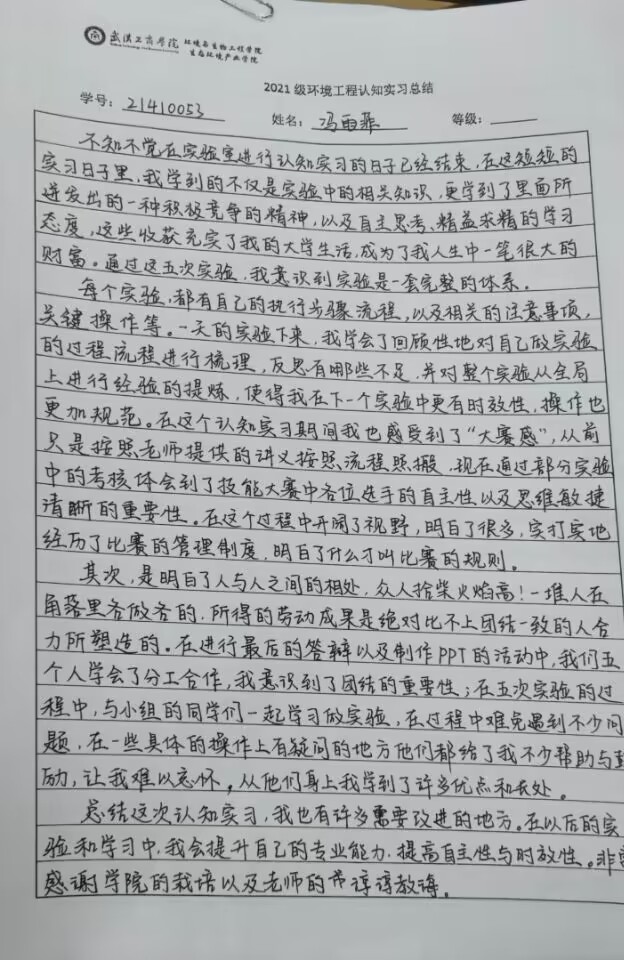 武汉工商学院 环境与生物工程学院
生态环境产业学院
2021级环境工程认知实习总结
学号：21410053 姓名：冯雨菲 等级：
不知不觉在实验室进行认知实习的日子已经结束，在这短短的
实习日子里，我学到的不仅是实验中的相关知识，更学到了里面所
迸发出的一种积极竞争的精神，以及自主思考、精益求精的学习
态度，这些收获充实了我的大学生活，成为了我人生中一笔很大的
财富。通过这五次实验，我意识到实验是一套完整的体系。
每个实验，都有自己的执行步骤流程，以及相关的注意事项，
关键操作等。一天的实验下来，我学会了回顾性地对自己做实验
的过程流程进行梳理，反思有哪些不足，并对整个实验从全局
上进行经验的提炼，使得我在下一个实验中更有时效性，操作也
更加规范。在这个认知实习期间我也感受到了“大赛感”，从前
只是按照老师提供的讲义按照流程照搬，现在通过部分实验
中的考核体会到了技能大赛中各位选手的自主性以及思维敏捷
清晰的重要性。在这个过程中开阔了视野，明白了很多，实打实地
经历了比赛的管理制度，明白了什么才叫比赛的规则。
其次，是明白了人与人之间的相处，众人拾柴火焰高！一堆人在
角落里各做各的，所得的劳动成果是绝对比不上团结一致的人合
力所塑造的。在进行最后的答辩以及制作PPT的活动中，我们五
个人学会了分工合作，我意识到了团结的重要性；在五次实验的过
程中，与小组的同学们一起学习做实验，在过程中难免遇到不少问
题，在一些具体的操作上有疑问的地方他们都给了我不少帮助与
励，让我难以忘怀，从他们身上我学到了许多优点和长处。
总结这次认知实习，我也有许多需要改进的地方。在以后的实
验和学习中，我会提升自己的专业能力，提高自主性与时效性。非
感谢学院的栽培以及老师的谆谆教诲。